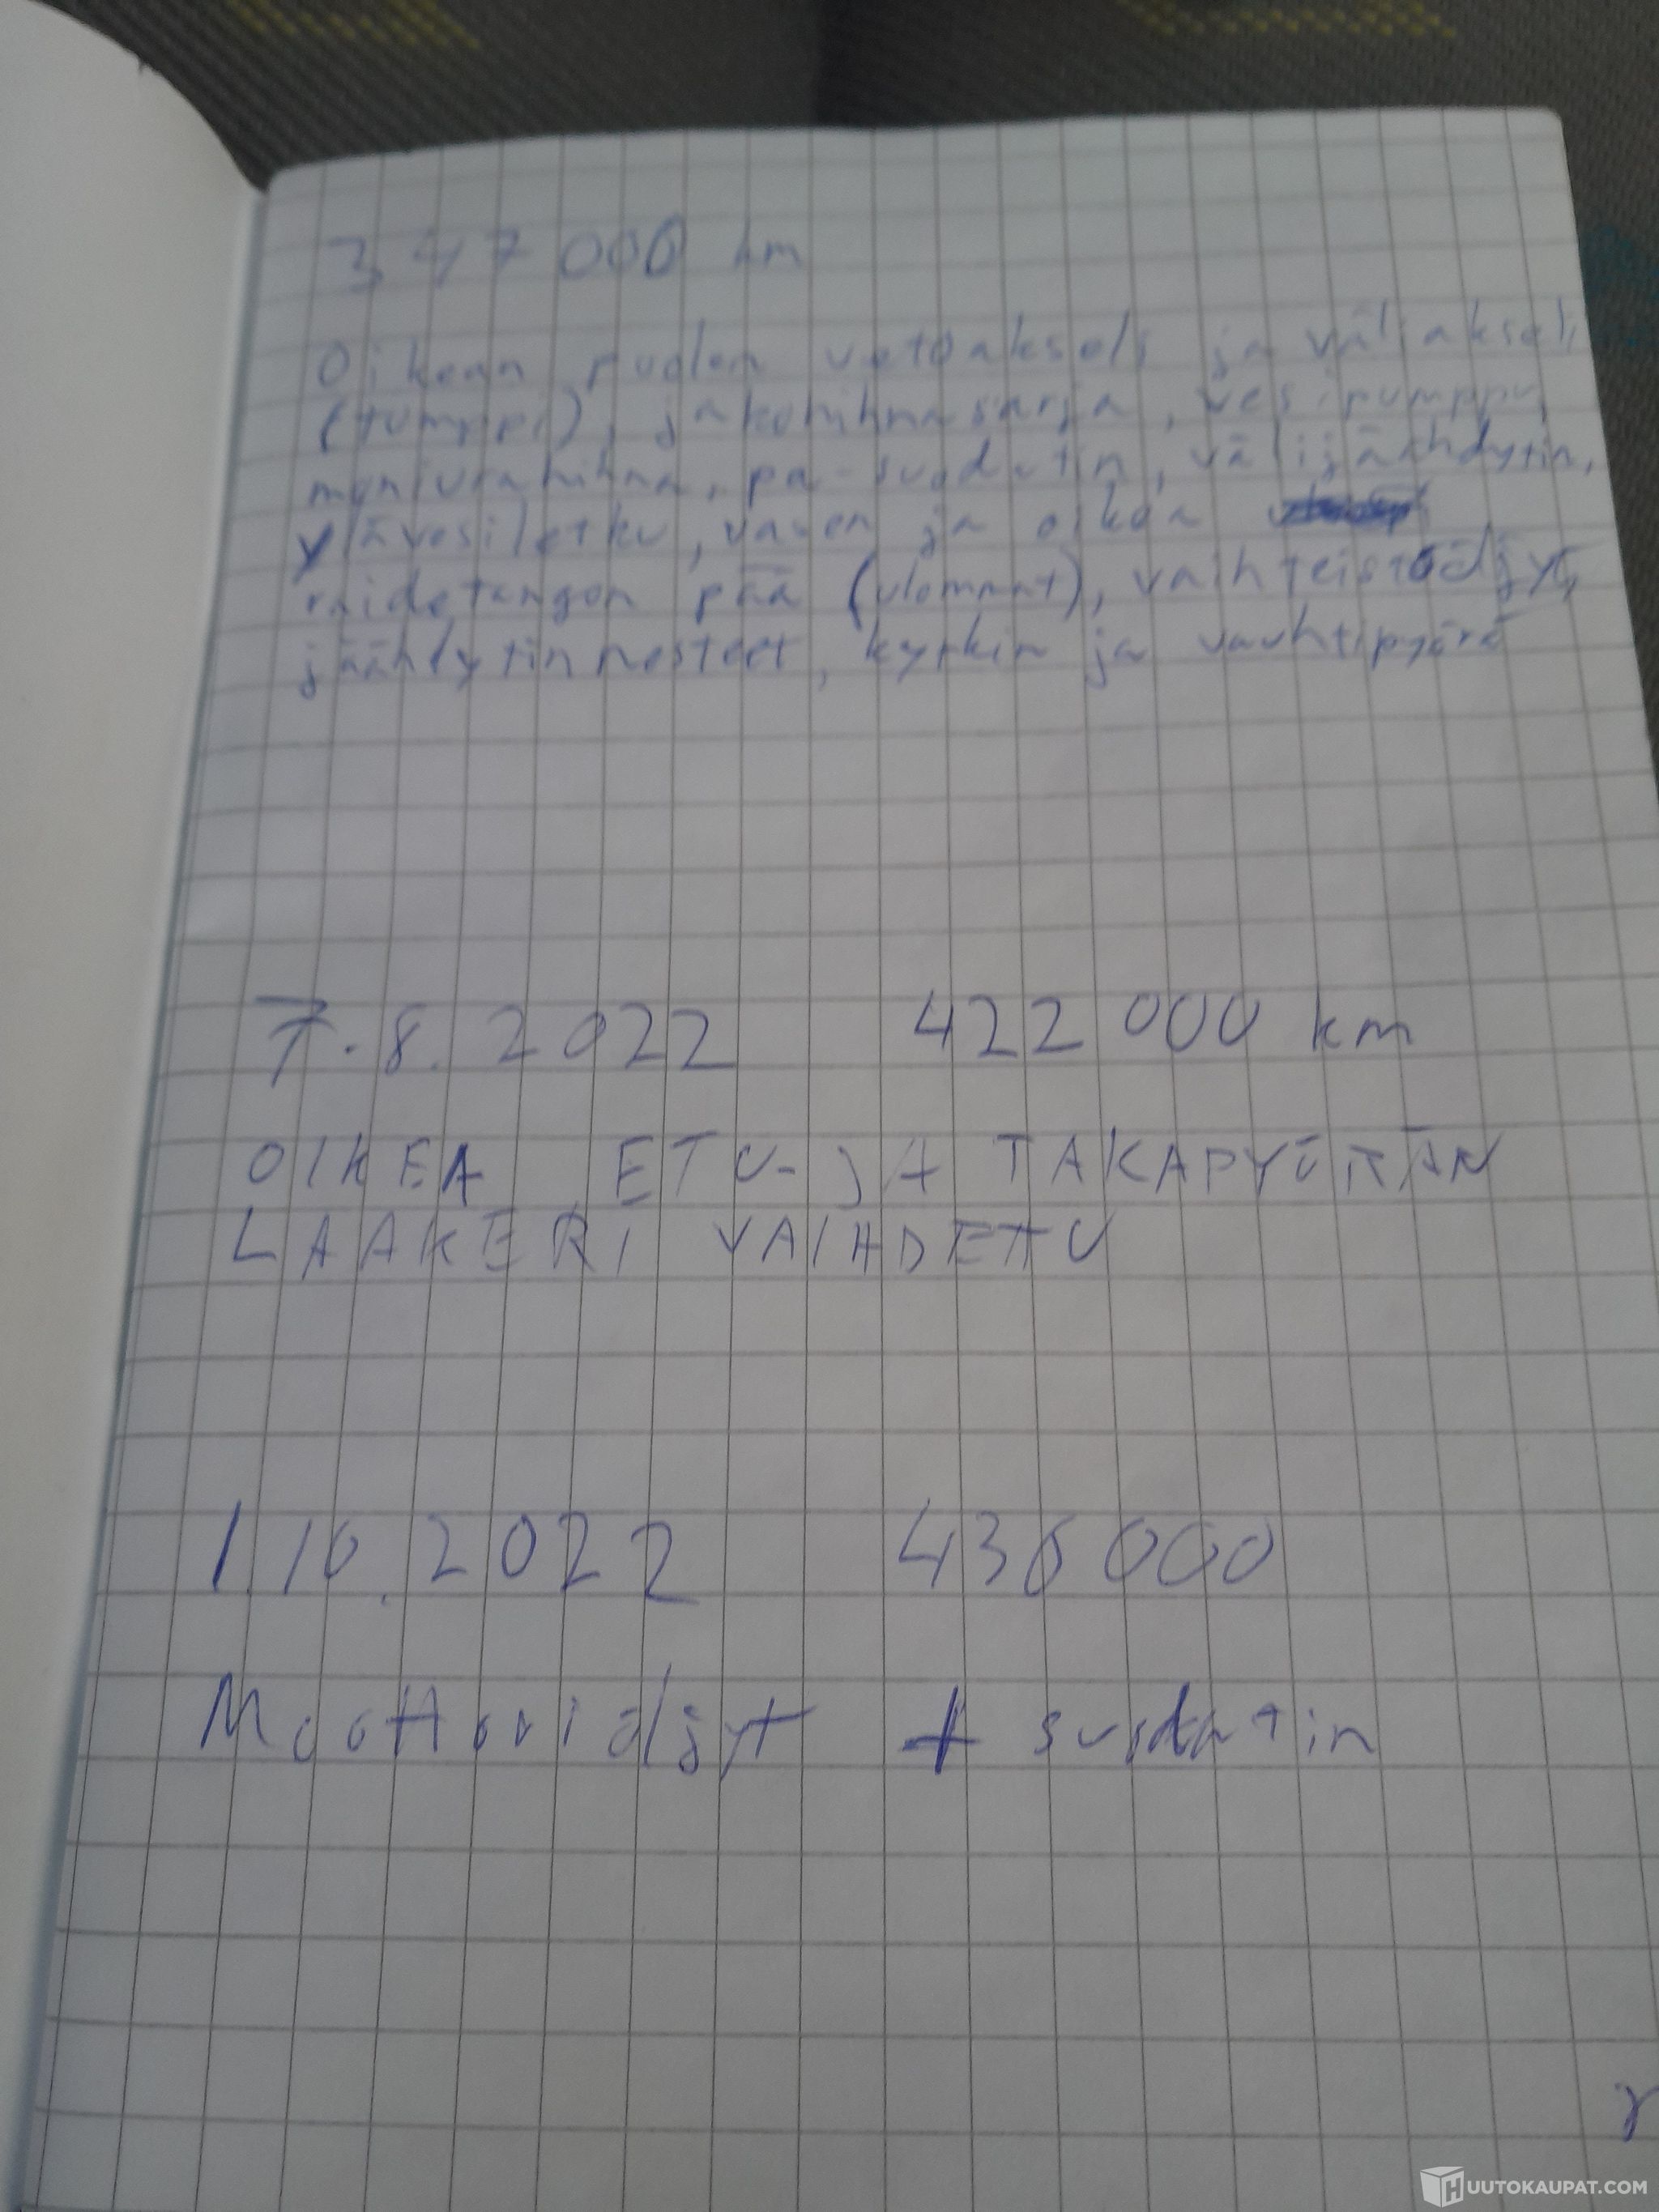 347 000 km
Oikean puolen vetoakseli ja väliakseli
(tumppi), jakohihnasarja, vesipumppu,
moniurahihna, pa-suodatin, välijäähdytin,
ylävesiletku, vasen ja oikea
raidetangon pää (ulommat), vaihteistoöljyt,
jäähdytinnesteet, kytkin ja vauhtipyörä
7.8.2022 422 000 km
OIKEA ETU- JA TAKAPYÖRÄN
LAAKERI VAIHDETTU
1.10.2022 436 000
Moottoriöljyt + suodatin
HUUTOKAUPAT.COM